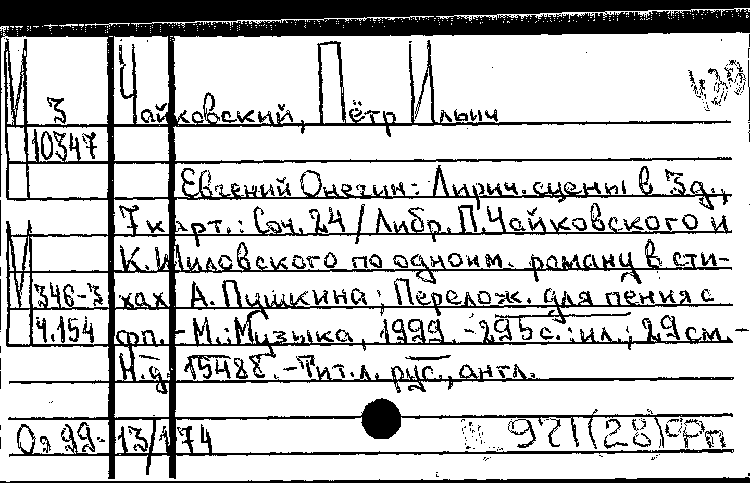 М 3 Чайковский, Пётр Ильич 430
10347
Евгений Онегин: Лирич. сцены в 3 д.,
7 карт.: Соч. 24 / Либр. П. Чайковского и
К. Шиловского по одноим. роману в сти-
М 346-3 хах А. Пушкина; Перелож. для пения с
ч. 154 фп. - М.: Музыка, 1999. - 295 с.: ил.; 29 см. -
Н. д. 15488. - Тит. л. рус., англ.
Оэ 99-13/174 921(28)Фп